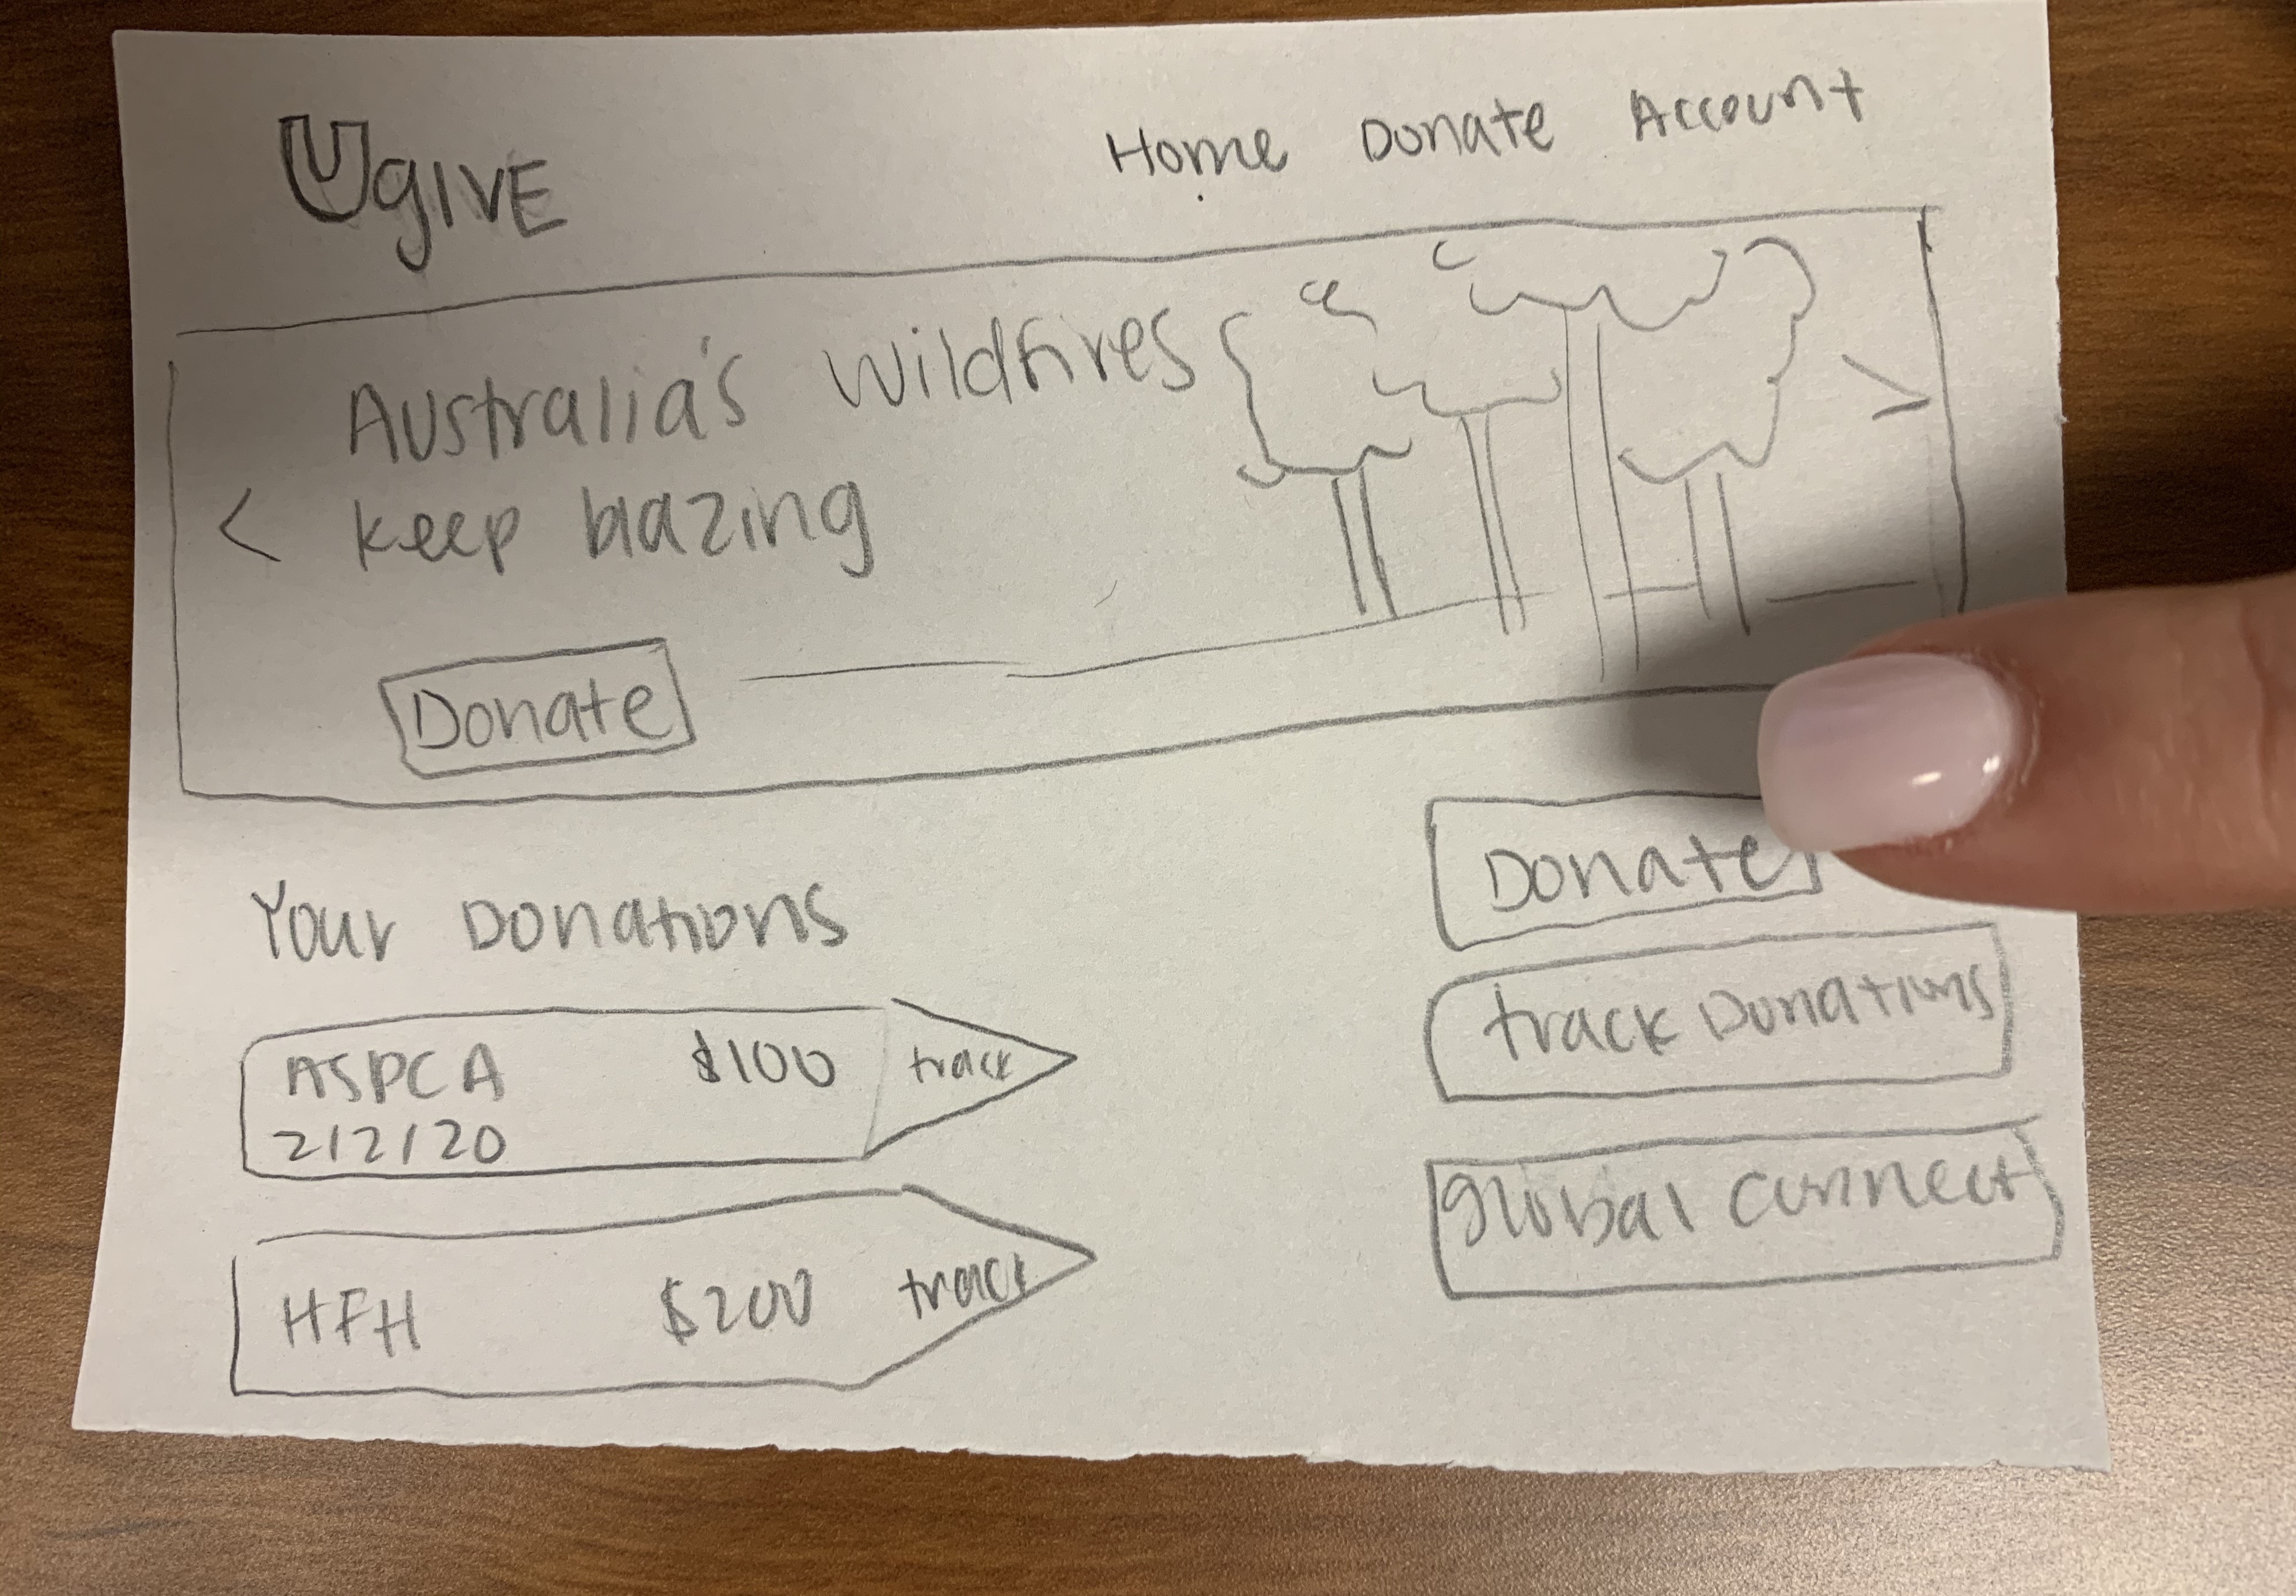 UgIVE
Home Donate Account
Australia's wildfires
< keep blazing >
Donate
Your Donations
ASPCA $100 track
2/2/20
HFH $200 track
Donate
track Donations
global connect